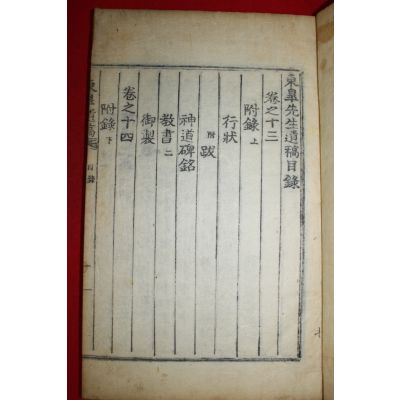 東皐先生遺稿目錄
卷之十三
附錄上
行狀
附跋
神道碑銘
教書二
御製
卷之十四
附錄下
東皐遺稿
目錄